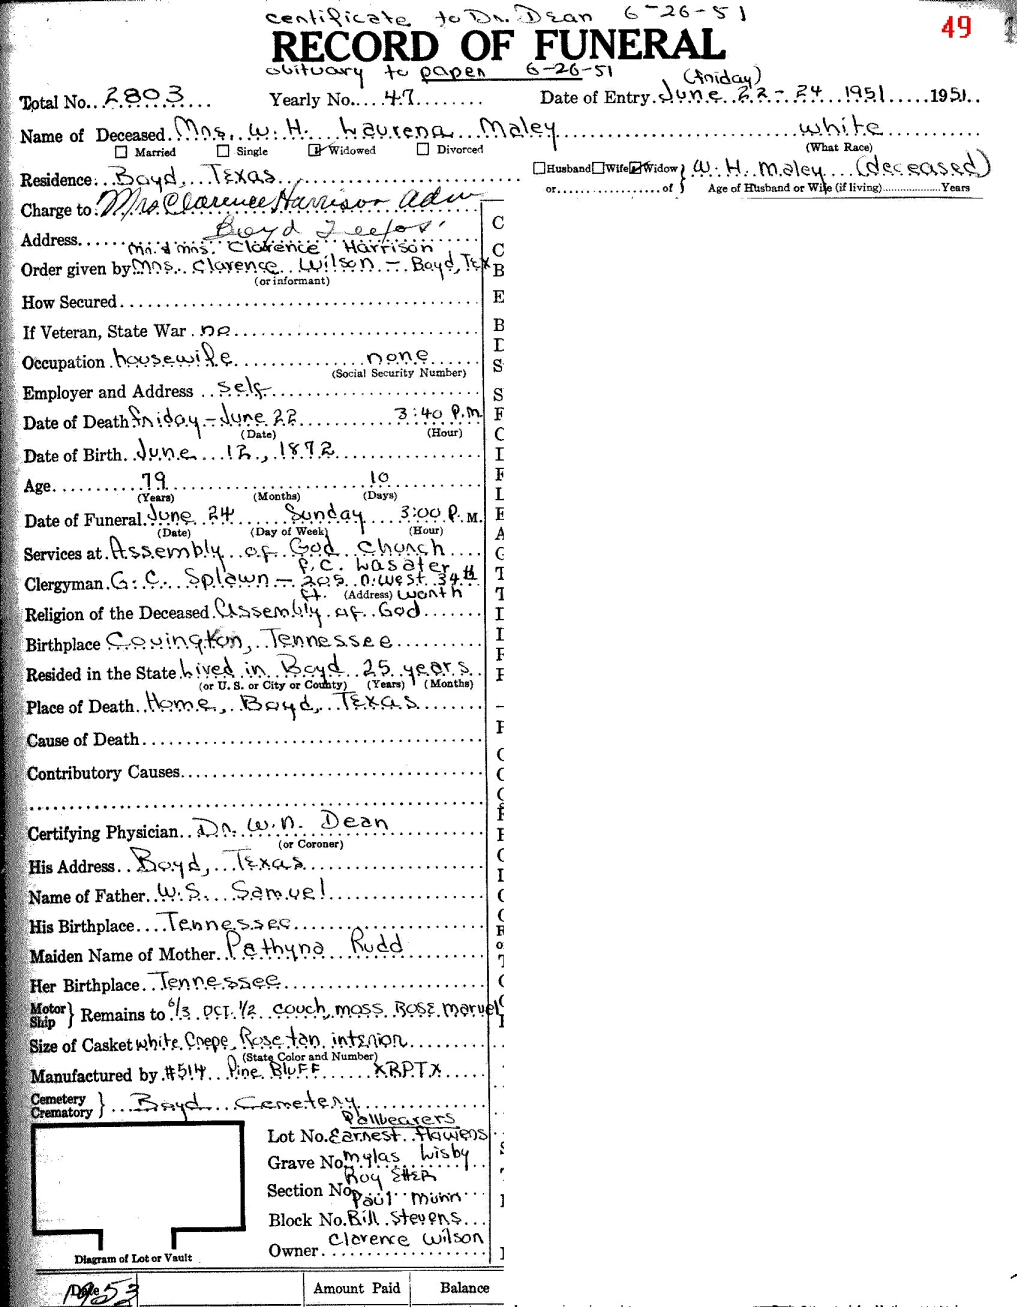 certificate to Dr. Dean 6-26-51
49
RECORD OF FUNERAL
obituary to paper 6-26-51
(Friday)
Total No. 2803 Yearly No. 47 Date of Entry June 22-24 1951 1951
Name of Deceased Mrs. W. H. Laurena Maley white
Married Single Widowed Divorced (What Race)
Husband Wife Widow } W. H. Maley (deceased)
or of } Age of Husband or Wife (if living) Years
Residence: Boyd, Texas
Charge to: Mrs Clarence Harrison adm
Address Boyd Texas
Mr. & Mrs. Clarence Harrison
Order given by Mrs. Clarence Wilson - Boyd, Tex
(or informant)
How Secured
If Veteran, State War no
Occupation housewife none
(Social Security Number)
Employer and Address self
Date of Death Friday - June 22 3:40 P.M
(Date) (Hour)
Date of Birth June 12, 1872
Age 79 10
(Years) (Months) (Days)
Date of Funeral June 24 Sunday 3:00 P.M.
(Date) (Day of Week) (Hour)
Services at Assembly of God Church
P.C. Lasater
Clergyman G. C. Splawn - 205 N. West 34th
(Address) Ft. Worth
Religion of the Deceased Assembly of God
Birthplace Covington, Tennessee
Resided in the State Lived in Boyd 25 years
(or U. S. or City or County) (Years) (Months)
Place of Death Home, Boyd, Texas
Cause of Death
Contributory Causes
Certifying Physician Dr. W. N. Dean
(or Coroner)
His Address Boyd, Texas
Name of Father W.S. Samuel
His Birthplace Tennessee
Maiden Name of Mother Pathyna Rudd
Her Birthplace Tennessee
Motor Ship } Remains to 6/3 OCT. 1/2 couch moss Rose marvel
Size of Casket white Crepe Rose tan interior
(State Color and Number)
Manufactured by #514 Pine Bluff XRPTX
Cemetery Crematory } Boyd Cemetery
Pallbearers
Lot No. Earnest Flowers
Grave No. Mylas Lisby
Roy
Section No. Paul Munn
Block No. Bill Stevens
Owner Clarence Wilson
Diagram of Lot or Vault
Date 1953 Amount Paid Balance